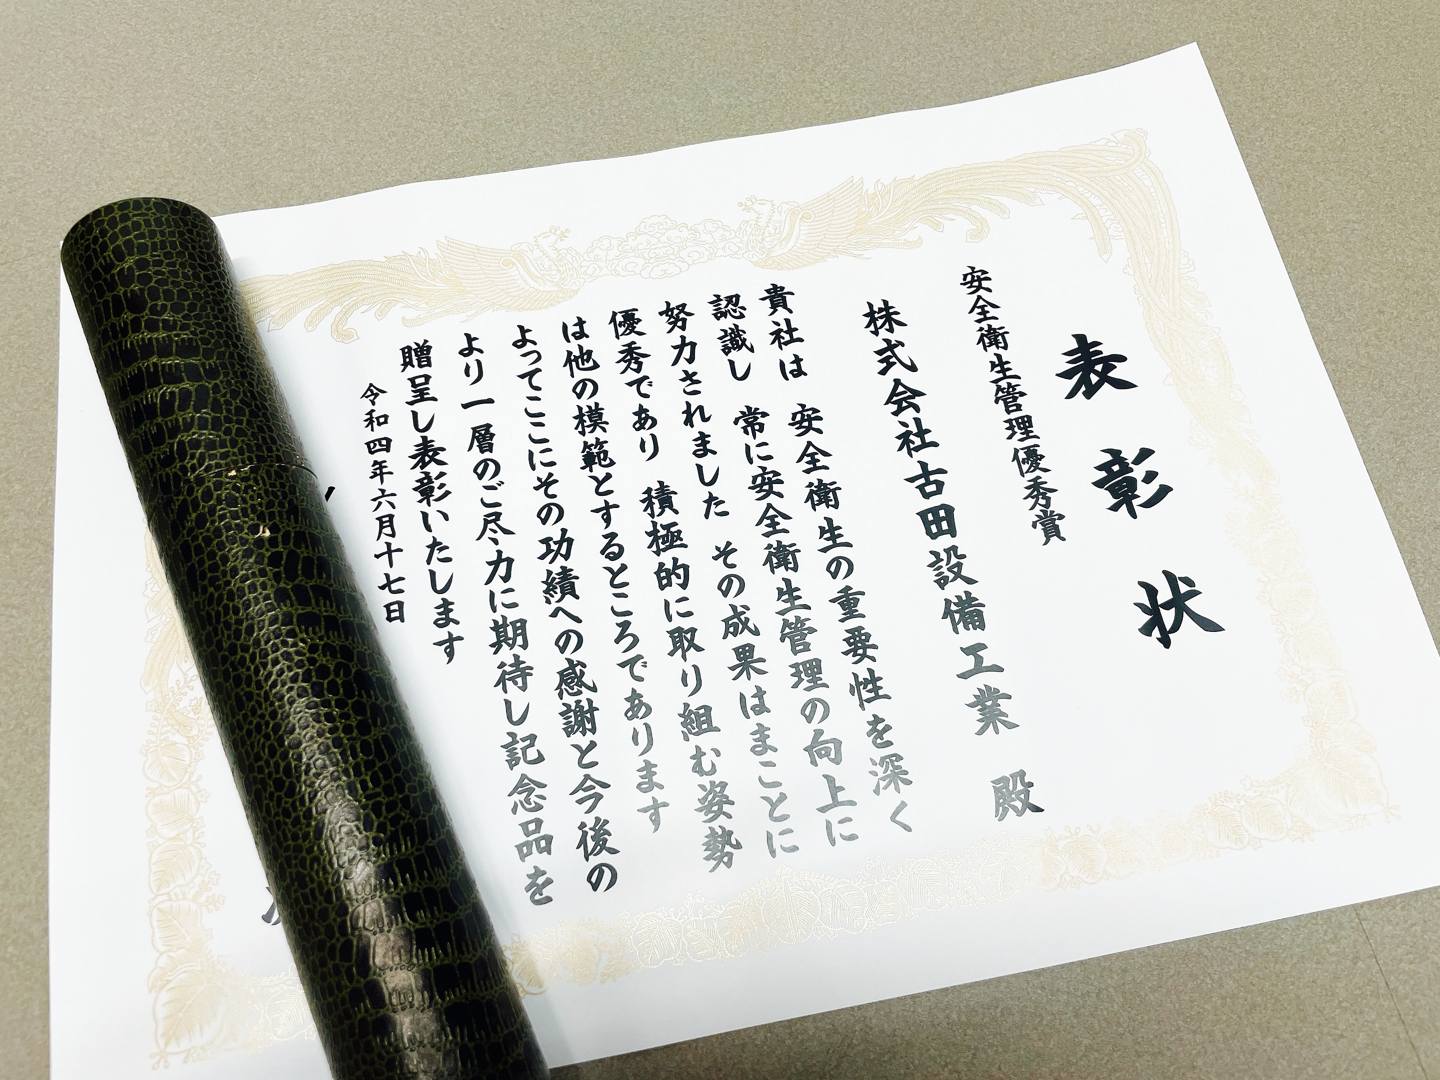 表彰状
安全衛生管理優秀賞
株式会社古田設備工業 殿
貴社は 安全衛生の重要性を深く
認識し 常に安全衛生管理の向上に
努力されました その成果はまことに
優秀であり 積極的に取り組む姿勢
は他の模範とするところであります
よってここにその功績への感謝と今後の
より一層のご尽力に期待し記念品を
贈呈し表彰いたします
令和四年六月十七日